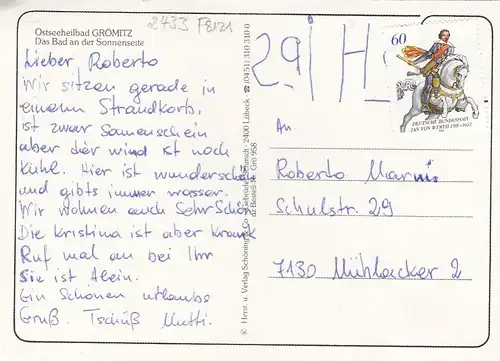 2433 F8121
Ostseeheilbad GRÖMITZ
Das Bad an der Sonnenseite
Lieber Roberto
Wir sitzen gerade in
einem Strandkorb,
ist zwar Sonnenschein
aber der wind ist noch
Kühl. Hier ist wunderschön
und gibts immer wasser.
Wir wohnen auch Sehr Schön
Die Kristina ist aber krank
Ruf mal an bei Ihr
Sie ist Alein.
Ein Schönen urlaubs
Gruß. Tschüß Mutti.
Herst. u. Verlag Schöning & Co + Gebrüder Schmidt · 2400 Lübeck ☎ (0451) 310 310 0
Bestell Grö 958
29 H
60
DEUTSCHE BUNDESPOST
JAN VON WERTH 1591-1652
An
Roberto
Schulstr. 29
7130 Mühlacker 2